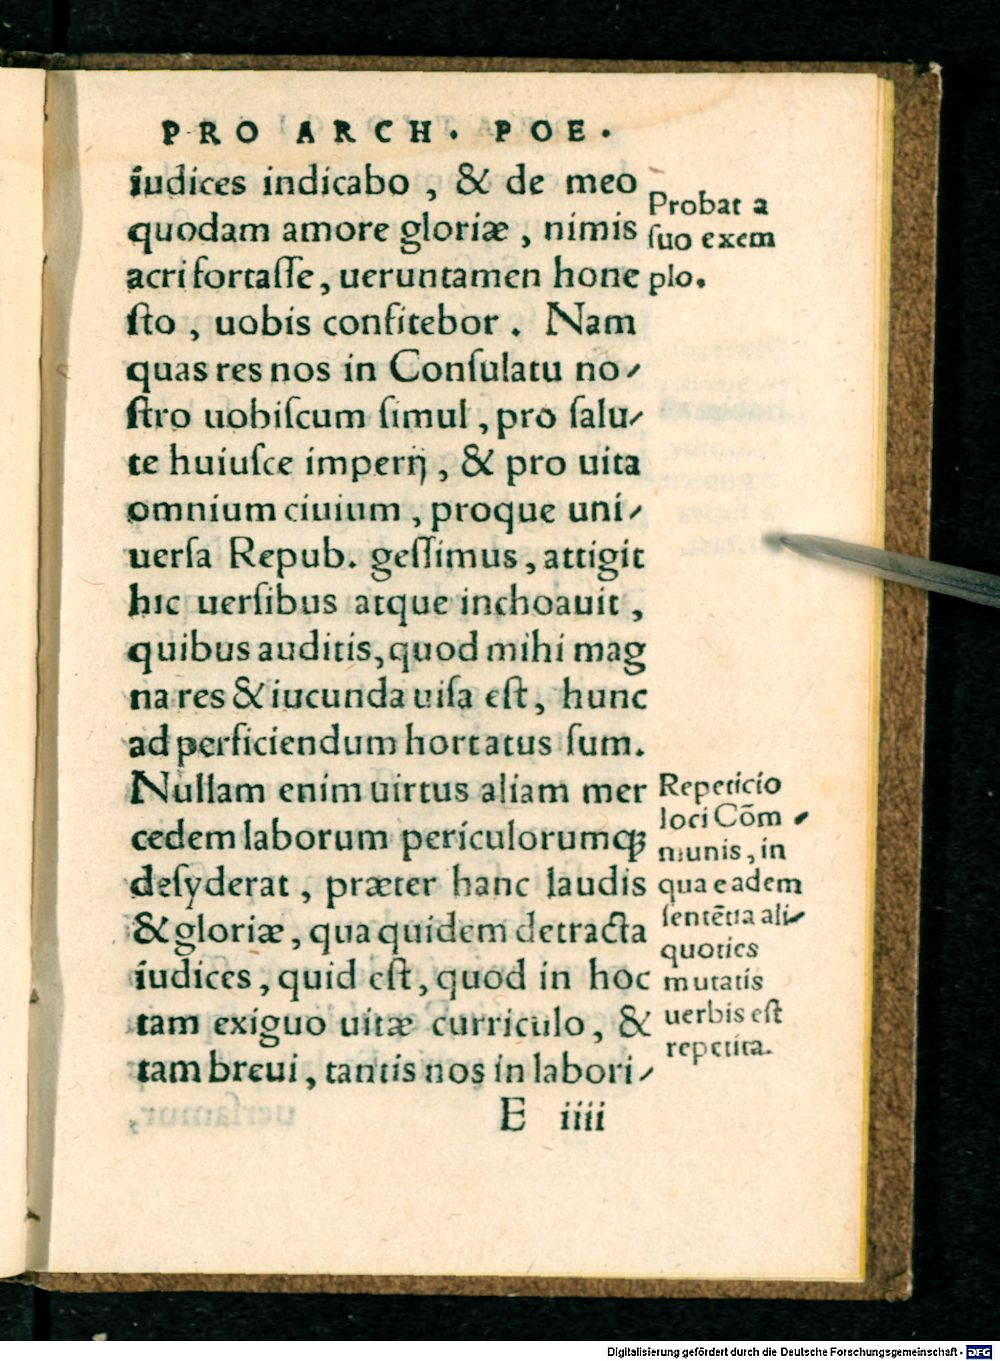 PRO ARCH. POE.
iudices indicabo, & de meo
quodam amore gloriæ, nimis
acri fortaſſe, ueruntamen hone
ſto, uobis confitebor. Nam
quas res nos in Conſulatu no-
ſtro uobiſcum ſimul, pro ſalu-
te huiuſce imperij, & pro uita
omnium ciuium, proque uni-
uerſa Repub. geſſimus, attigit
hic uerſibus atque inchoauit,
quibus auditis, quod mihi mag
na res & iucunda uiſa eſt, hunc
ad perficiendum hortatus ſum.
Nullam enim uirtus aliam mer
cedem laborum periculorumq́;
deſyderat, præter hanc laudis
& gloriæ, qua quidem detracta
iudices, quid eſt, quod in hoc
tam exiguo uitæ curriculo, &
tam breui, tantis nos in labori-
E iiii
Probat a
ſuo exem
plo.
Repeticio
loci Cõm-
munis, in
qua eadem
ſentẽtia ali-
quoties
mutatis
uerbis eſt
repetita.
Digitalisierung gefördert durch die Deutsche Forschungsgemeinschaft - DFG